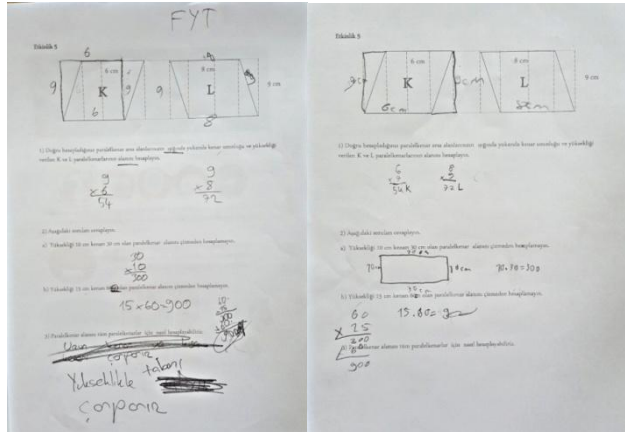 FYT
Etkinlik 5
6
6 cm
8 cm
9 cm
9
K
9
9
L
6
8
1) Doğru hesapladığınız paralelkenar ama alanlarınızın aşağıda yukarıda kenar uzunluğu ve yüksekliği
verilen K ve L paralelkenarlarının alanını hesaplayın.
9
x 6
54
9
x 8
72
2) Aşağıdaki soruları cevaplayın.
a) Yüksekliği 10 cm kenarı 30 cm olan paralelkenar alanını çizmeden hesaplamayın.
30
x 10
300
b) Yüksekliği 15 cm kenarı olan paralelkenar alanını çizmeden hesaplamayın.
15 x 60=900
3) Paralelkenar alanını tüm paralelkenarlar için nasıl hesaplayabiliriz.
Yükseklikle tabanı
çarparız
Etkinlik 5
6 cm
8 cm
9 cm
K
L
6 cm
8cm
1) Doğru hesapladığınız paralelkenar ama alanlarınızın aşağıda yukarıda kenar uzunluğu ve yüksekliği
verilen K ve L paralelkenarlarının alanını hesaplayın.
54 K
72 L
2) Aşağıdaki soruları cevaplayın.
a) Yüksekliği 10 cm kenarı 30 cm olan paralelkenar alanını çizmeden hesaplamayın.
10.30=300
b) Yüksekliği 15 cm kenarı olan paralelkenar alanını çizmeden hesaplamayın.
60
900